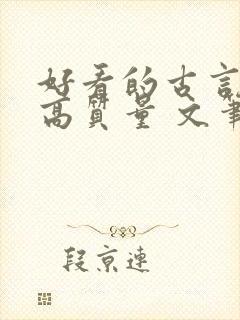 好看的古言
高质量 文笔
段京连